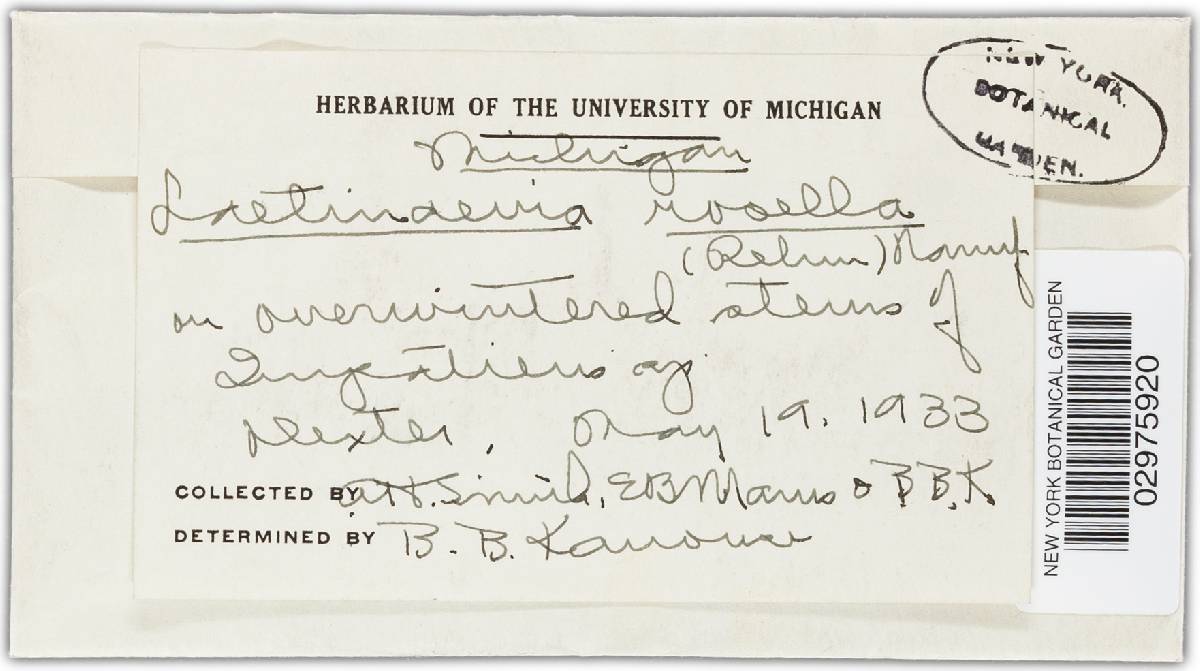 HERBARIUM OF THE UNIVERSITY OF MICHIGAN
NEW YORK
BOTANICAL
GARDEN.
Michigan
Laetinaevia rosella
(Rehm) Nannf
on overwintered stems of
Impatiens sp
Dexter, May 19, 1933
COLLECTED BY A.H. Smith, E B Mains & B.B.K.
DETERMINED BY B. B. Kanouse
NEW YORK BOTANICAL GARDEN
02975920